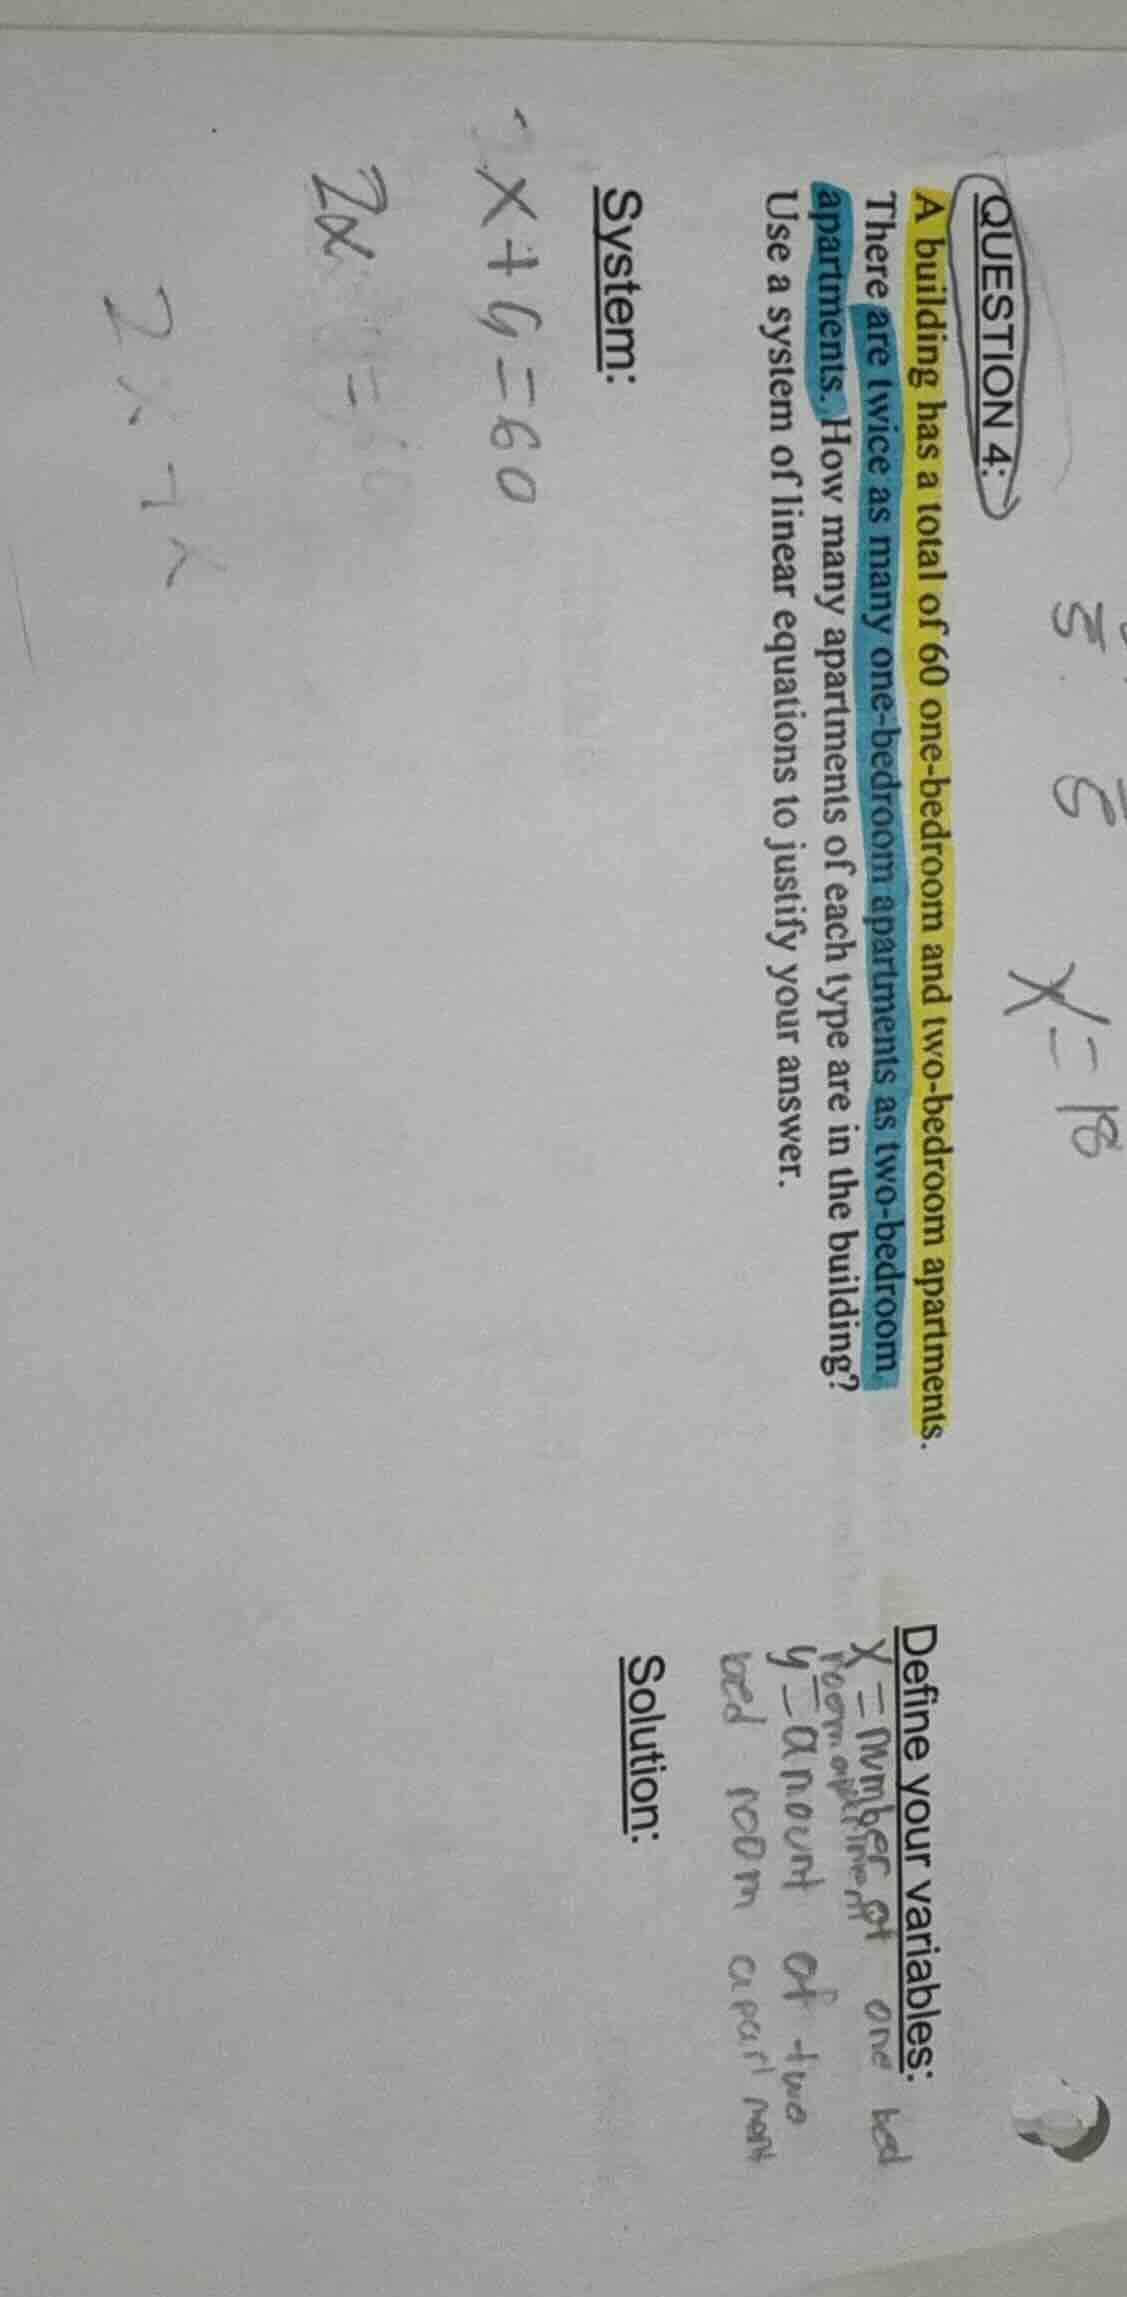 x=18
QUESTION 4:
A building has a total of 60 one-bedroom and two-bedroom apartments.
There are twice as many one-bedroom apartments as two-bedroom
apartments. How many apartments of each type are in the building?
Use a system of linear equations to justify your answer.
Define your variables:
x=number of one bed
room apartment
y=amount of two
bed room apartment
System:
x+y=60
2x =
2x
Solution: